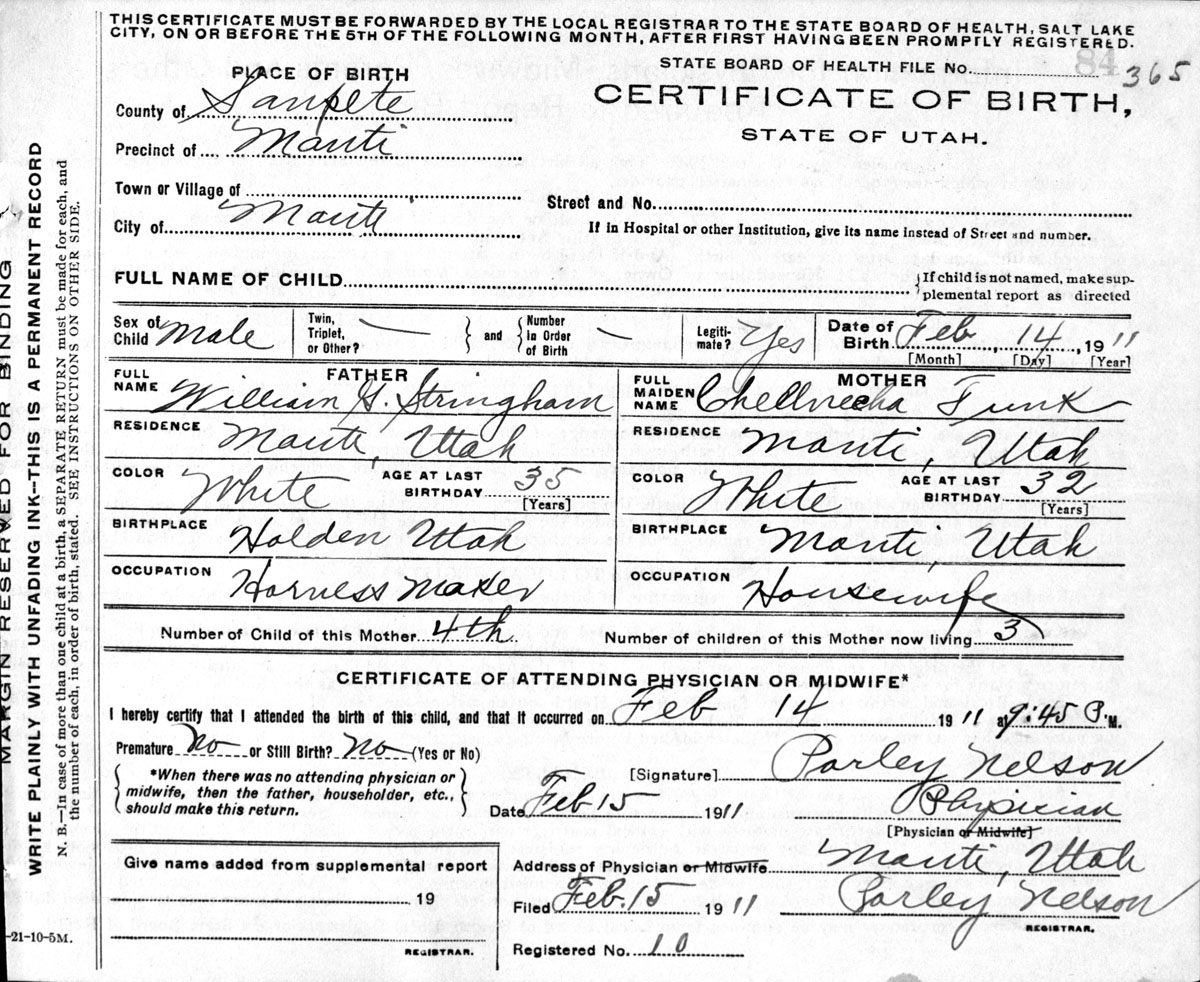 THIS CERTIFICATE MUST BE FORWARDED BY THE LOCAL REGISTRAR TO THE STATE BOARD OF HEALTH, SALT LAKE
CITY, ON OR BEFORE THE 5TH OF THE FOLLOWING MONTH, AFTER FIRST HAVING BEEN PROMPTLY REGISTERED.
STATE BOARD OF HEALTH FILE No. 84 365
CERTIFICATE OF BIRTH,
STATE OF UTAH.
PLACE OF BIRTH
County of Sanpete
Precinct of Manti
Town or Village of
City of Manti
Street and No.
If in Hospital or other Institution, give its name instead of Street and number.
FULL NAME OF CHILD
{If child is not named, make sup-
plemental report as directed
Sex of Child Male
Twin, Triplet, or Other? —
and
Number in Order of Birth —
Legiti-mate? Yes
Date of Birth Feb 14, 1911
[Month] [Day] [Year]
FATHER
FULL NAME William G. Stringham
RESIDENCE Manti, Utah
COLOR White AGE AT LAST BIRTHDAY 35
[Years]
BIRTHPLACE Holden Utah
OCCUPATION Harness Maker
MOTHER
FULL MAIDEN NAME Funk
RESIDENCE Manti, Utah
COLOR White AGE AT LAST BIRTHDAY 32
[Years]
BIRTHPLACE Manti, Utah
OCCUPATION Housewife
Number of Child of this Mother 4th Number of children of this Mother now living 3
CERTIFICATE OF ATTENDING PHYSICIAN OR MIDWIFE*
I hereby certify that I attended the birth of this child, and that it occurred on Feb 14 1911 at 9:45 P.M.
Premature No or Still Birth? No (Yes or No)
*When there was no attending physician or
midwife, then the father, householder, etc.,
should make this return.
[Signature] Parley Nelson
Date Feb 15 1911 Physician
[Physician or Midwife]
Give name added from supplemental report
19
REGISTRAR.
Address of Physician or Midwife Manti, Utah
Filed Feb. 15 1911 Parley Nelson
REGISTRAR.
Registered No. 10
-21-10-5M.
MARGIN RESERVED FOR BINDING
WRITE PLAINLY WITH UNFADING INK—THIS IS A PERMANENT RECORD
N. B.—In case of more than one child at a birth, a SEPARATE RETURN must be made for each, and
the number of each, in order of birth, stated. SEE INSTRUCTIONS ON OTHER SIDE.